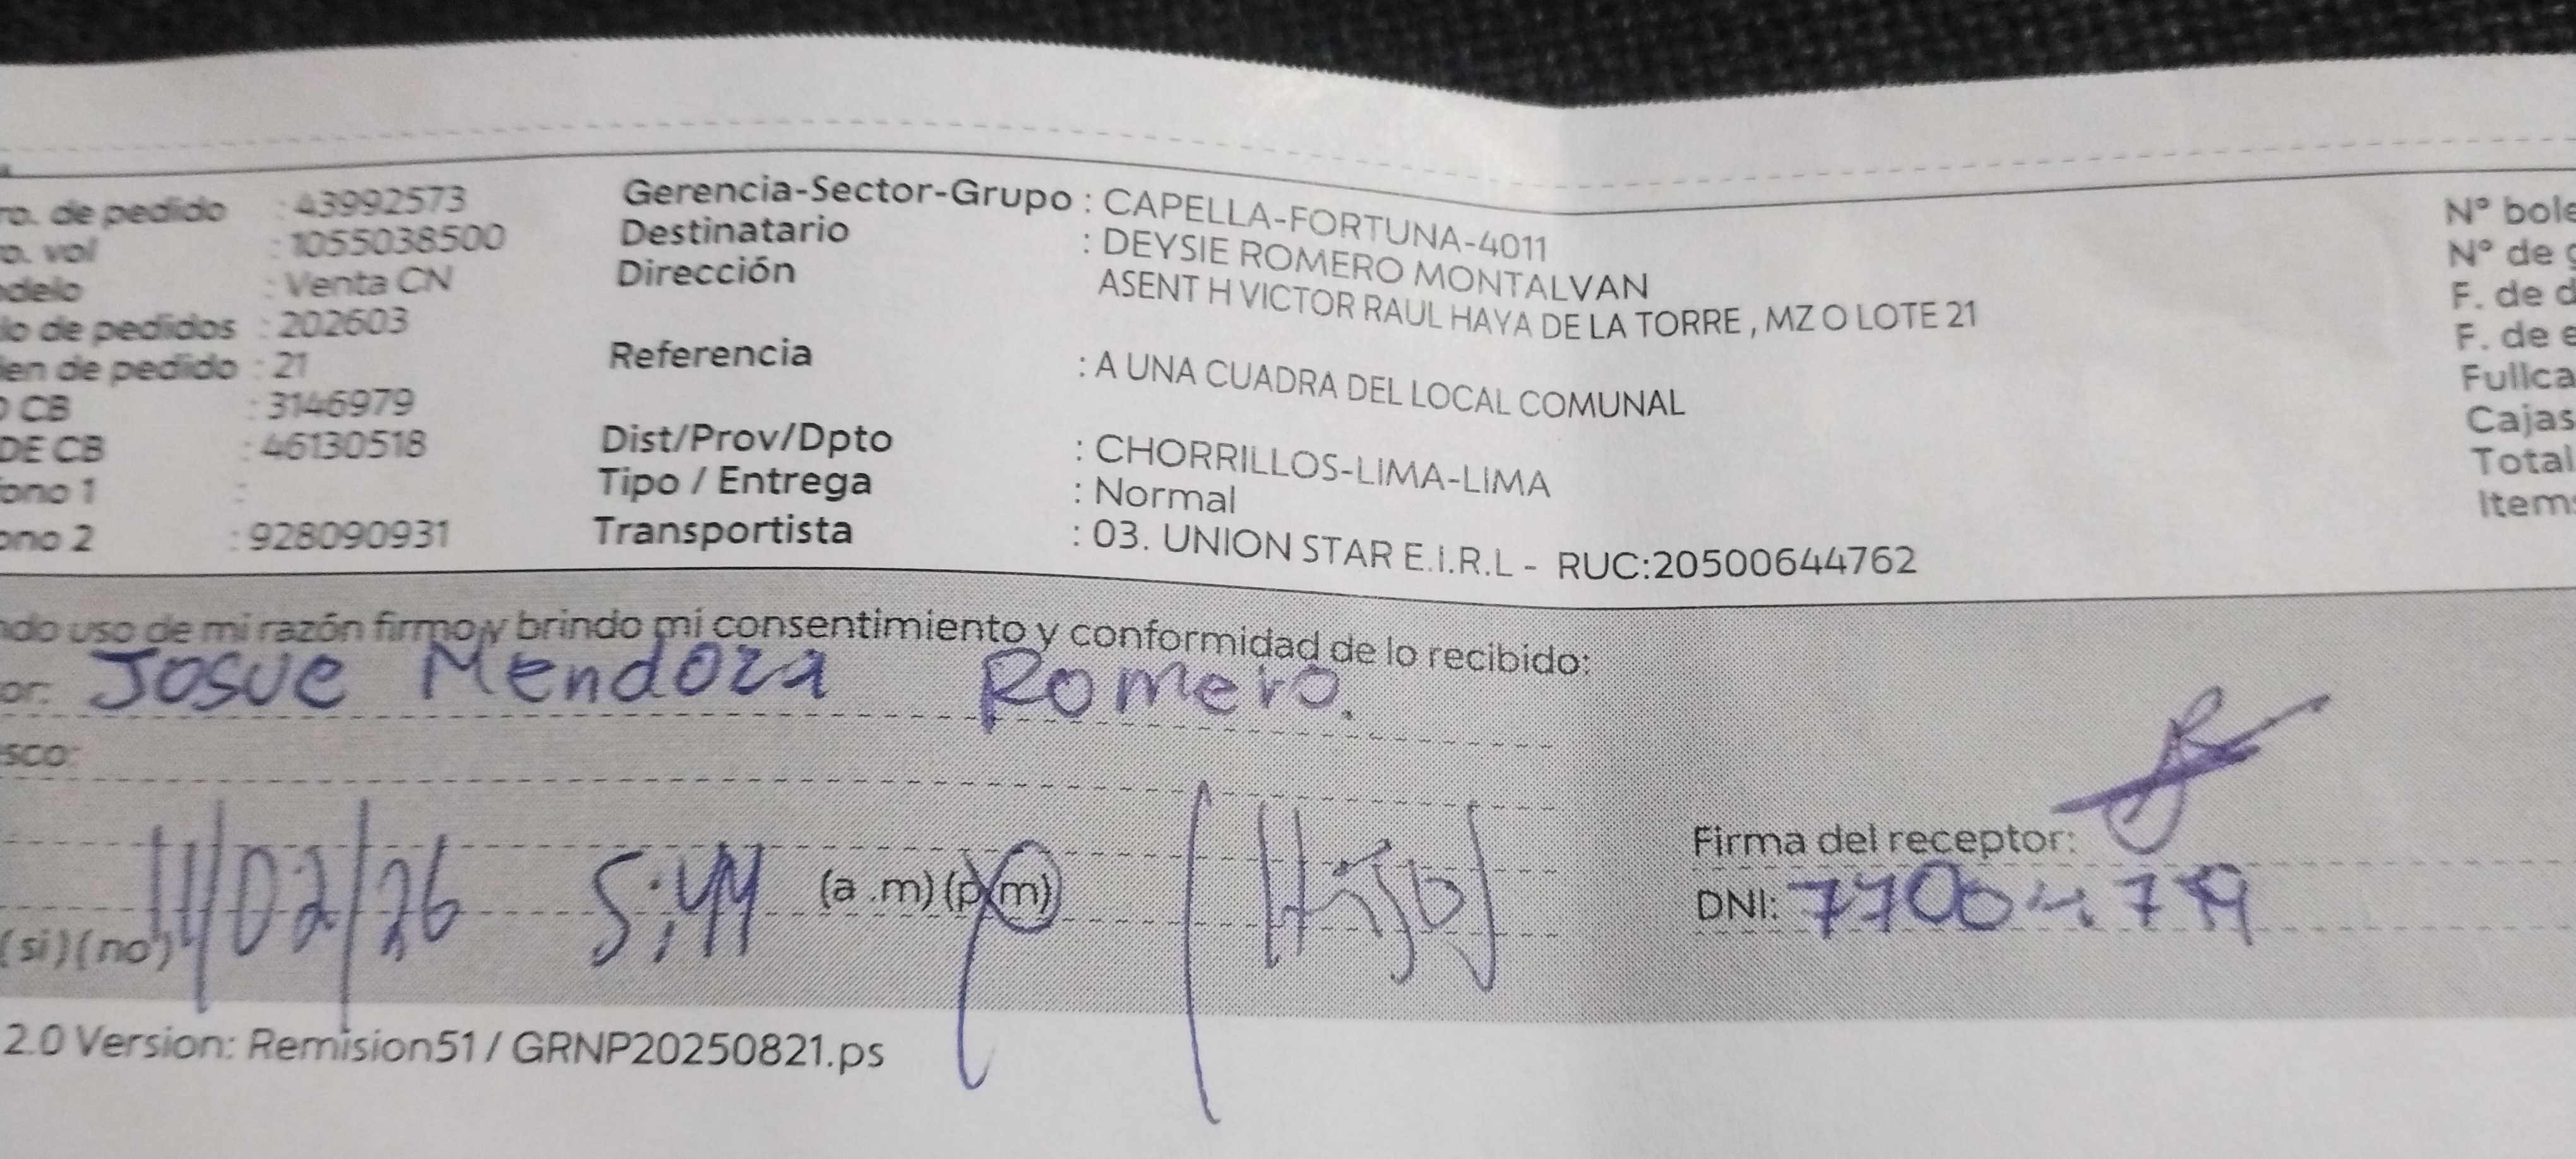 ro. de pedido : 43992573
ro. vol : 1055038500
odelo : Venta CN
lo de pedidos : 202603
den de pedido : 21
O CB : 3146979
DE CB : 46130518
fono 1 :
ono 2 : 928090931
Gerencia-Sector-Grupo : CAPELLA-FORTUNA-4011
Destinatario : DEYSIE ROMERO MONTALVAN
Dirección ASENT H VICTOR RAUL HAYA DE LA TORRE , MZ O LOTE 21
Referencia : A UNA CUADRA DEL LOCAL COMUNAL
Dist/Prov/Dpto : CHORRILLOS-LIMA-LIMA
Tipo / Entrega : Normal
Transportista : 03. UNION STAR E.I.R.L - RUC:20500644762
N° bole
N° de g
F. de d
F. de e
Fullca
Cajas
Total
Items
ndo uso de mi razón firmo y brindo mi consentimiento y conformidad de lo recibido:
or: Josue Mendoza Romero.
sco:
11/02/26 5:44 (a .m) (p.m) (Hijo)
(si) (no)
Firma del receptor:
DNI:
2.0 Version: Remision51 / GRNP20250821.ps